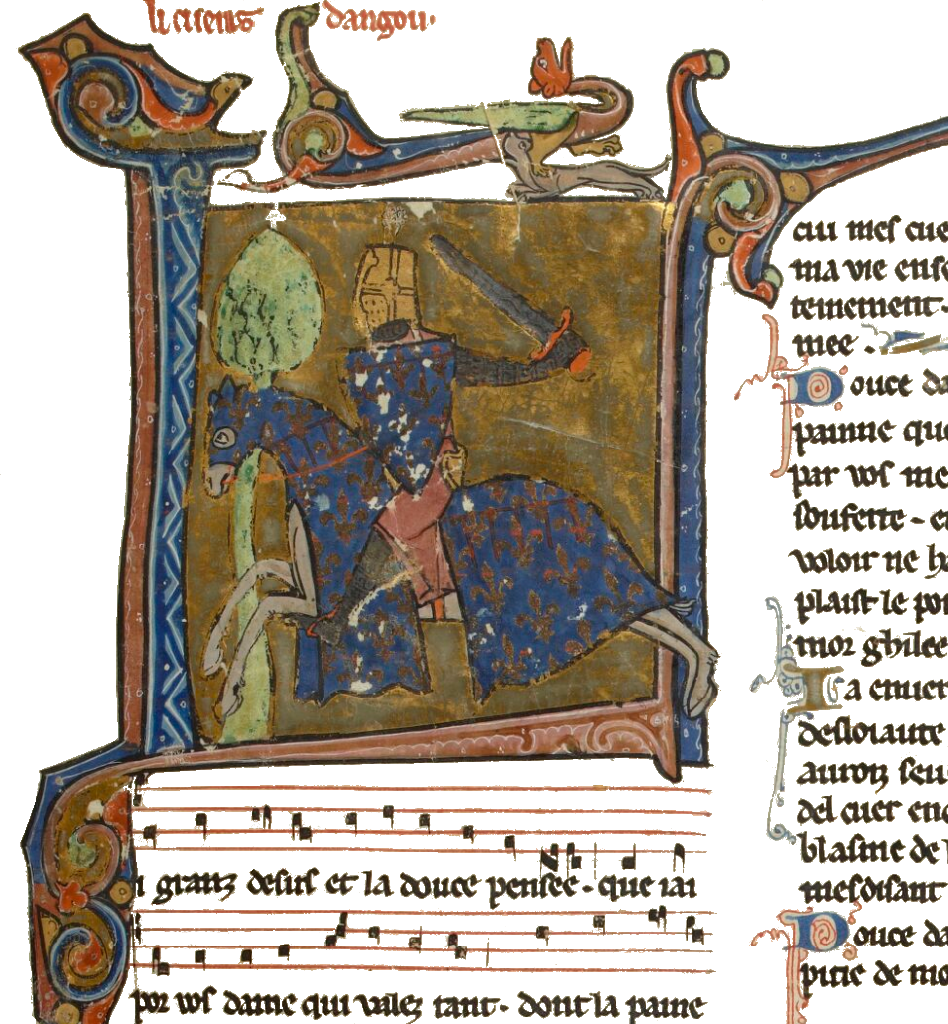 li cuens dangou·
i granz desirs et la douce pensee · que iai
por vos dame qui valez tant · dont la paine
cui mes cue
ma vie ense
tenement ·
mee ·
Douce da
painne que
par vos me
soufette · e
voloir ne ha
plaist le por
mor ghilee
La enuer
desloiaute
auroiz seu
del cuer en
blasme de
mesdisant
Douce da
pitie de mo